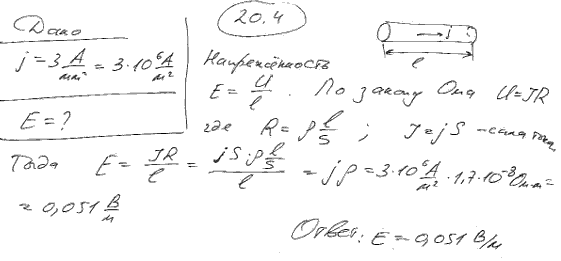 20.4
Дано
j = 3 А/мм² = 3·10⁶ А/м²
E = ?
j
l
Напряжённость
E = U/l. По закону Ома U = JR
где R = ρ l/S ; J = jS - сила тока
Тогда E = JR/l = jS·ρ l/S / l = jρ = 3·10⁶ А/м² · 1,7·10⁻⁸ Ом·м =
= 0,051 В/м
Ответ: E = 0,051 В/м